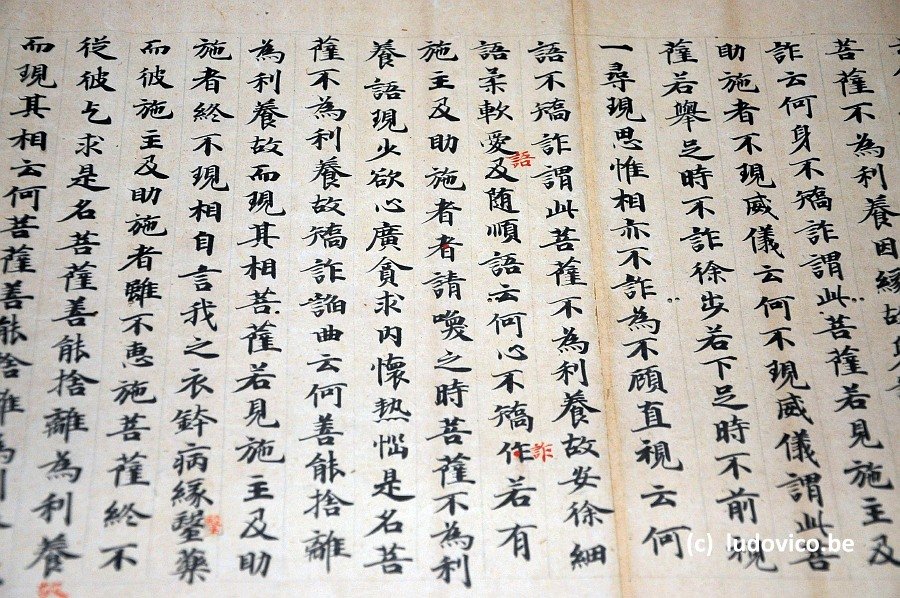 菩薩不為利養因縁故
詐云何身不矯詐謂此菩薩若見施主及
助施者不現威儀云何不現威儀謂此菩
薩若舉足時不詐徐步若下足時不前視
一尋現思惟相亦不詐為不顧直視云何
語不矯詐謂此菩薩不為利養故安徐細
語柔軟愛語及随順語云何心不矯作詐若有
施主及助施者者請喚之時菩薩不為利
養語現少欲心廣貪求内懷熱惱是名菩
薩不為利養故矯詐諂曲云何善能捨離
為利養故而現其相菩薩若見施主及助
施者終不現相自言我之衣鉢病縁毉藥
而彼施主及助施者雖不惠施菩薩終不
從彼乞求是名菩薩善能捨離為利養故
而現其相云何菩薩善能捨離為利
(c) ludovico.be